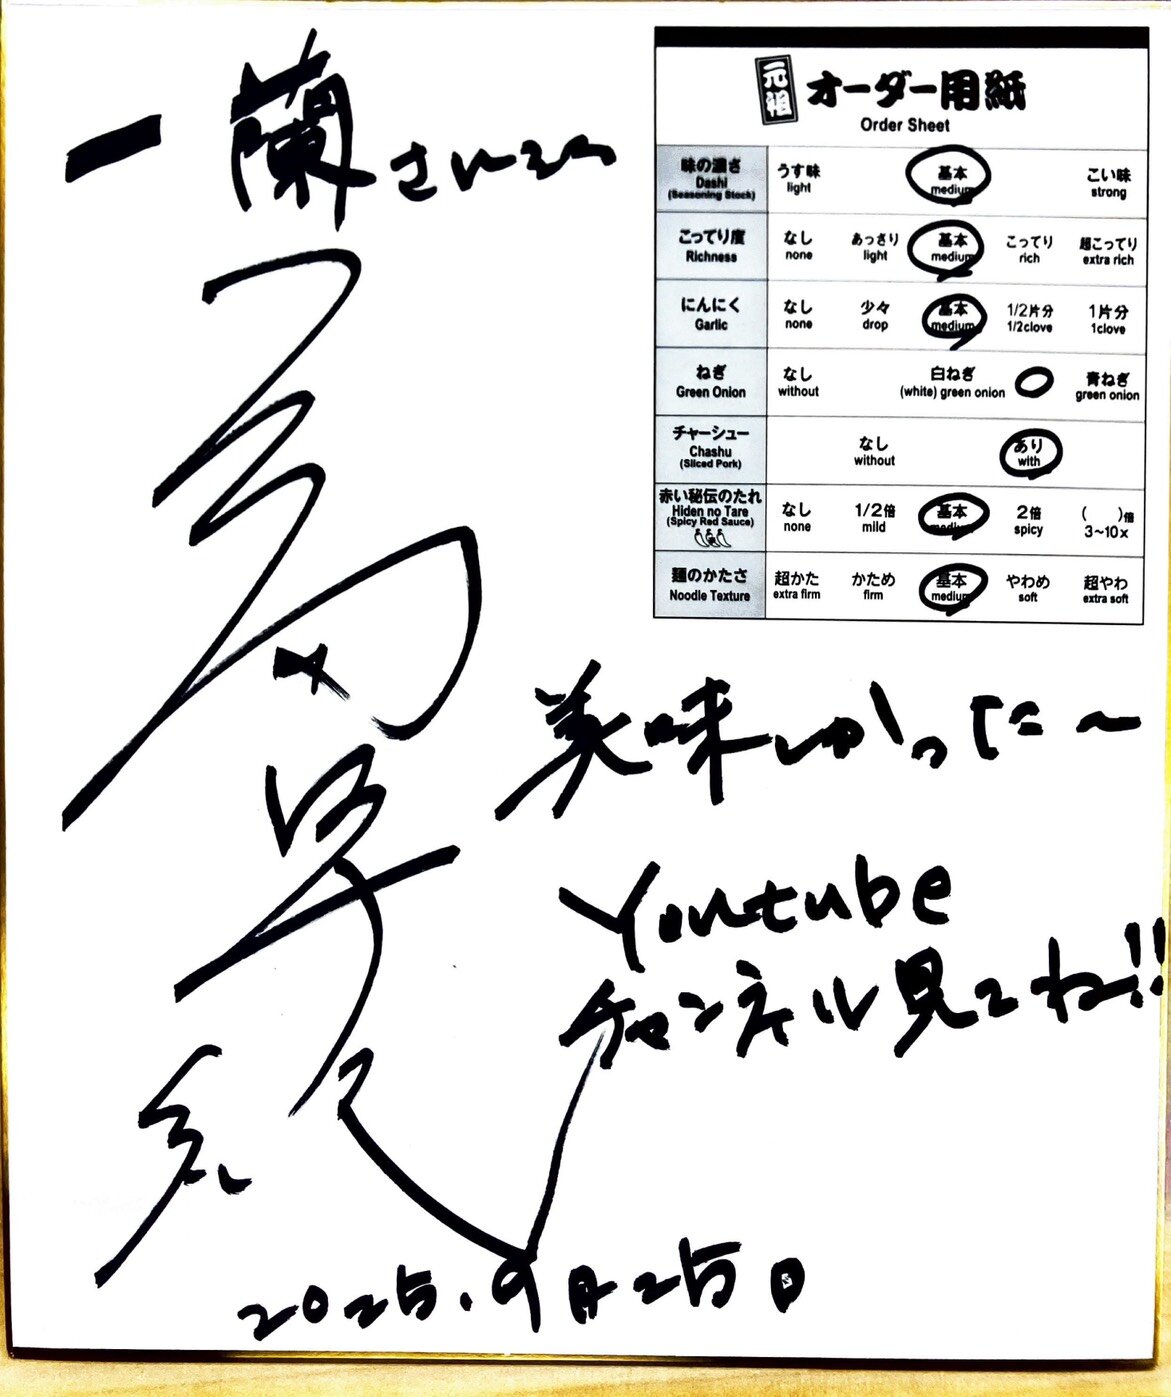 一蘭さんえ
元祖 オーダー用紙
Order Sheet
味の濃さ Dashi (Seasoning Stock) うす味 light 基本 medium こい味 strong
こってり度 Richness なし none あっさり light 基本 medium こってり rich 超こってり extra rich
にんにく Garlic なし none 少々 drop 基本 medium 1/2片分 1/2clove 1片分 1clove
ねぎ Green Onion なし without 白ねぎ (white) green onion 青ねぎ green onion
チャーシュー Chashu (Sliced Pork) なし without あり with
赤い秘伝のたれ Hiden no Tare (Spicy Red Sauce) なし none 1/2倍 mild 基本 medium 2倍 spicy ( )倍 3~10x
麺のかたさ Noodle Texture 超かた extra firm かため firm 基本 medium やわめ soft 超やわ extra soft
美味しかった〜
Youtube
チャンネル見てね!!
2025.9月25日